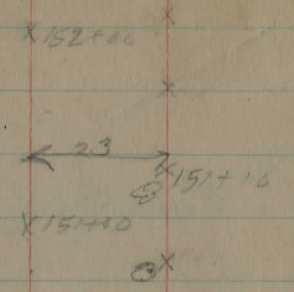 x
x 152+00
x
23
x 151+10
x 151+00
x